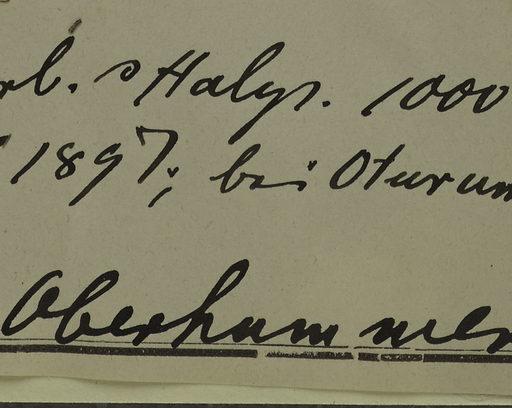 rb. Halys. 1000
1897; bei Oturum
Oberhummer